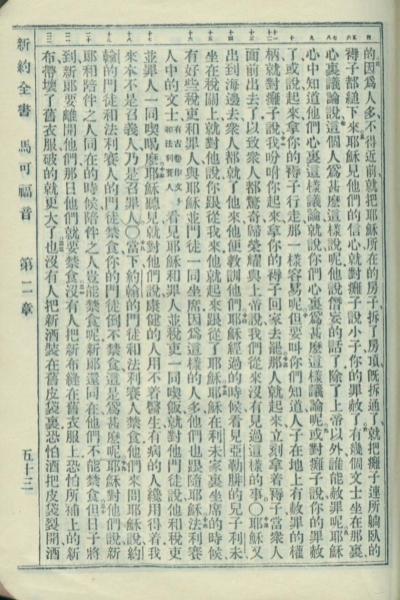 的因爲人多不得近前就把耶穌所在的房子拆了房頂旣拆通了就把癱子連所躺臥的
褥子都縋下來耶穌見他們的信心就對癱子說小子你的罪赦了有幾個文士坐在那裏
心裏議論說這個人爲甚麼這樣說呢他說僭妄的話了除了上帝以外誰能赦罪呢耶穌
心中知道他們心裏這樣議論就說你們心裏爲甚麼這樣議論呢或對癱子說你的罪赦
了或說起來拿你的褥子行走那一樣容易呢但要叫你們知道人子在地上有赦罪的權
柄就對癱子說我吩咐你起來拿你的褥子回家去罷那人就起來立刻拿着褥子當衆人
面前出去了以致衆人都驚奇歸榮耀與上帝說我們從來沒有見過這樣的事○耶穌又
出到海邊去衆人都就了他來他便敎訓他們耶穌經過的時候看見亞勒腓的兒子利未
坐在稅關上就對他說你跟從我來他就起來跟從了耶穌耶穌在利未家裏坐席的時候
有好些稅吏和罪人與耶穌並門徒一同坐席因爲這樣的人多他們也跟隨耶穌法利賽
人中的文士有古卷作文士和法利賽人看見耶穌和罪人並稅吏一同喫飯就對他門徒說他和稅吏
並罪人一同喫喝麼耶穌聽見就對他們說康健的人用不着醫生有病的人纔用得着我
來本不是召義人乃是召罪人○當下約翰的門徒和法利賽人禁食他們來問耶穌說約
翰的門徒和法利賽人的門徒禁食你的門徒倒不禁食這是爲甚麼呢耶穌對他們說新
耶和陪伴之人同在的時候陪伴之人豈能禁食呢新耶還同在他們不能禁食但日子將
到新耶要離開他們那日他們就要禁食沒有人把新布縫在舊衣服上恐怕所補上的新
布帶壞了舊衣服破的就更大了也沒有人把新酒裝在舊皮袋裏恐怕酒把皮袋裂開酒
新約全書 馬可福音 第二章 五十三